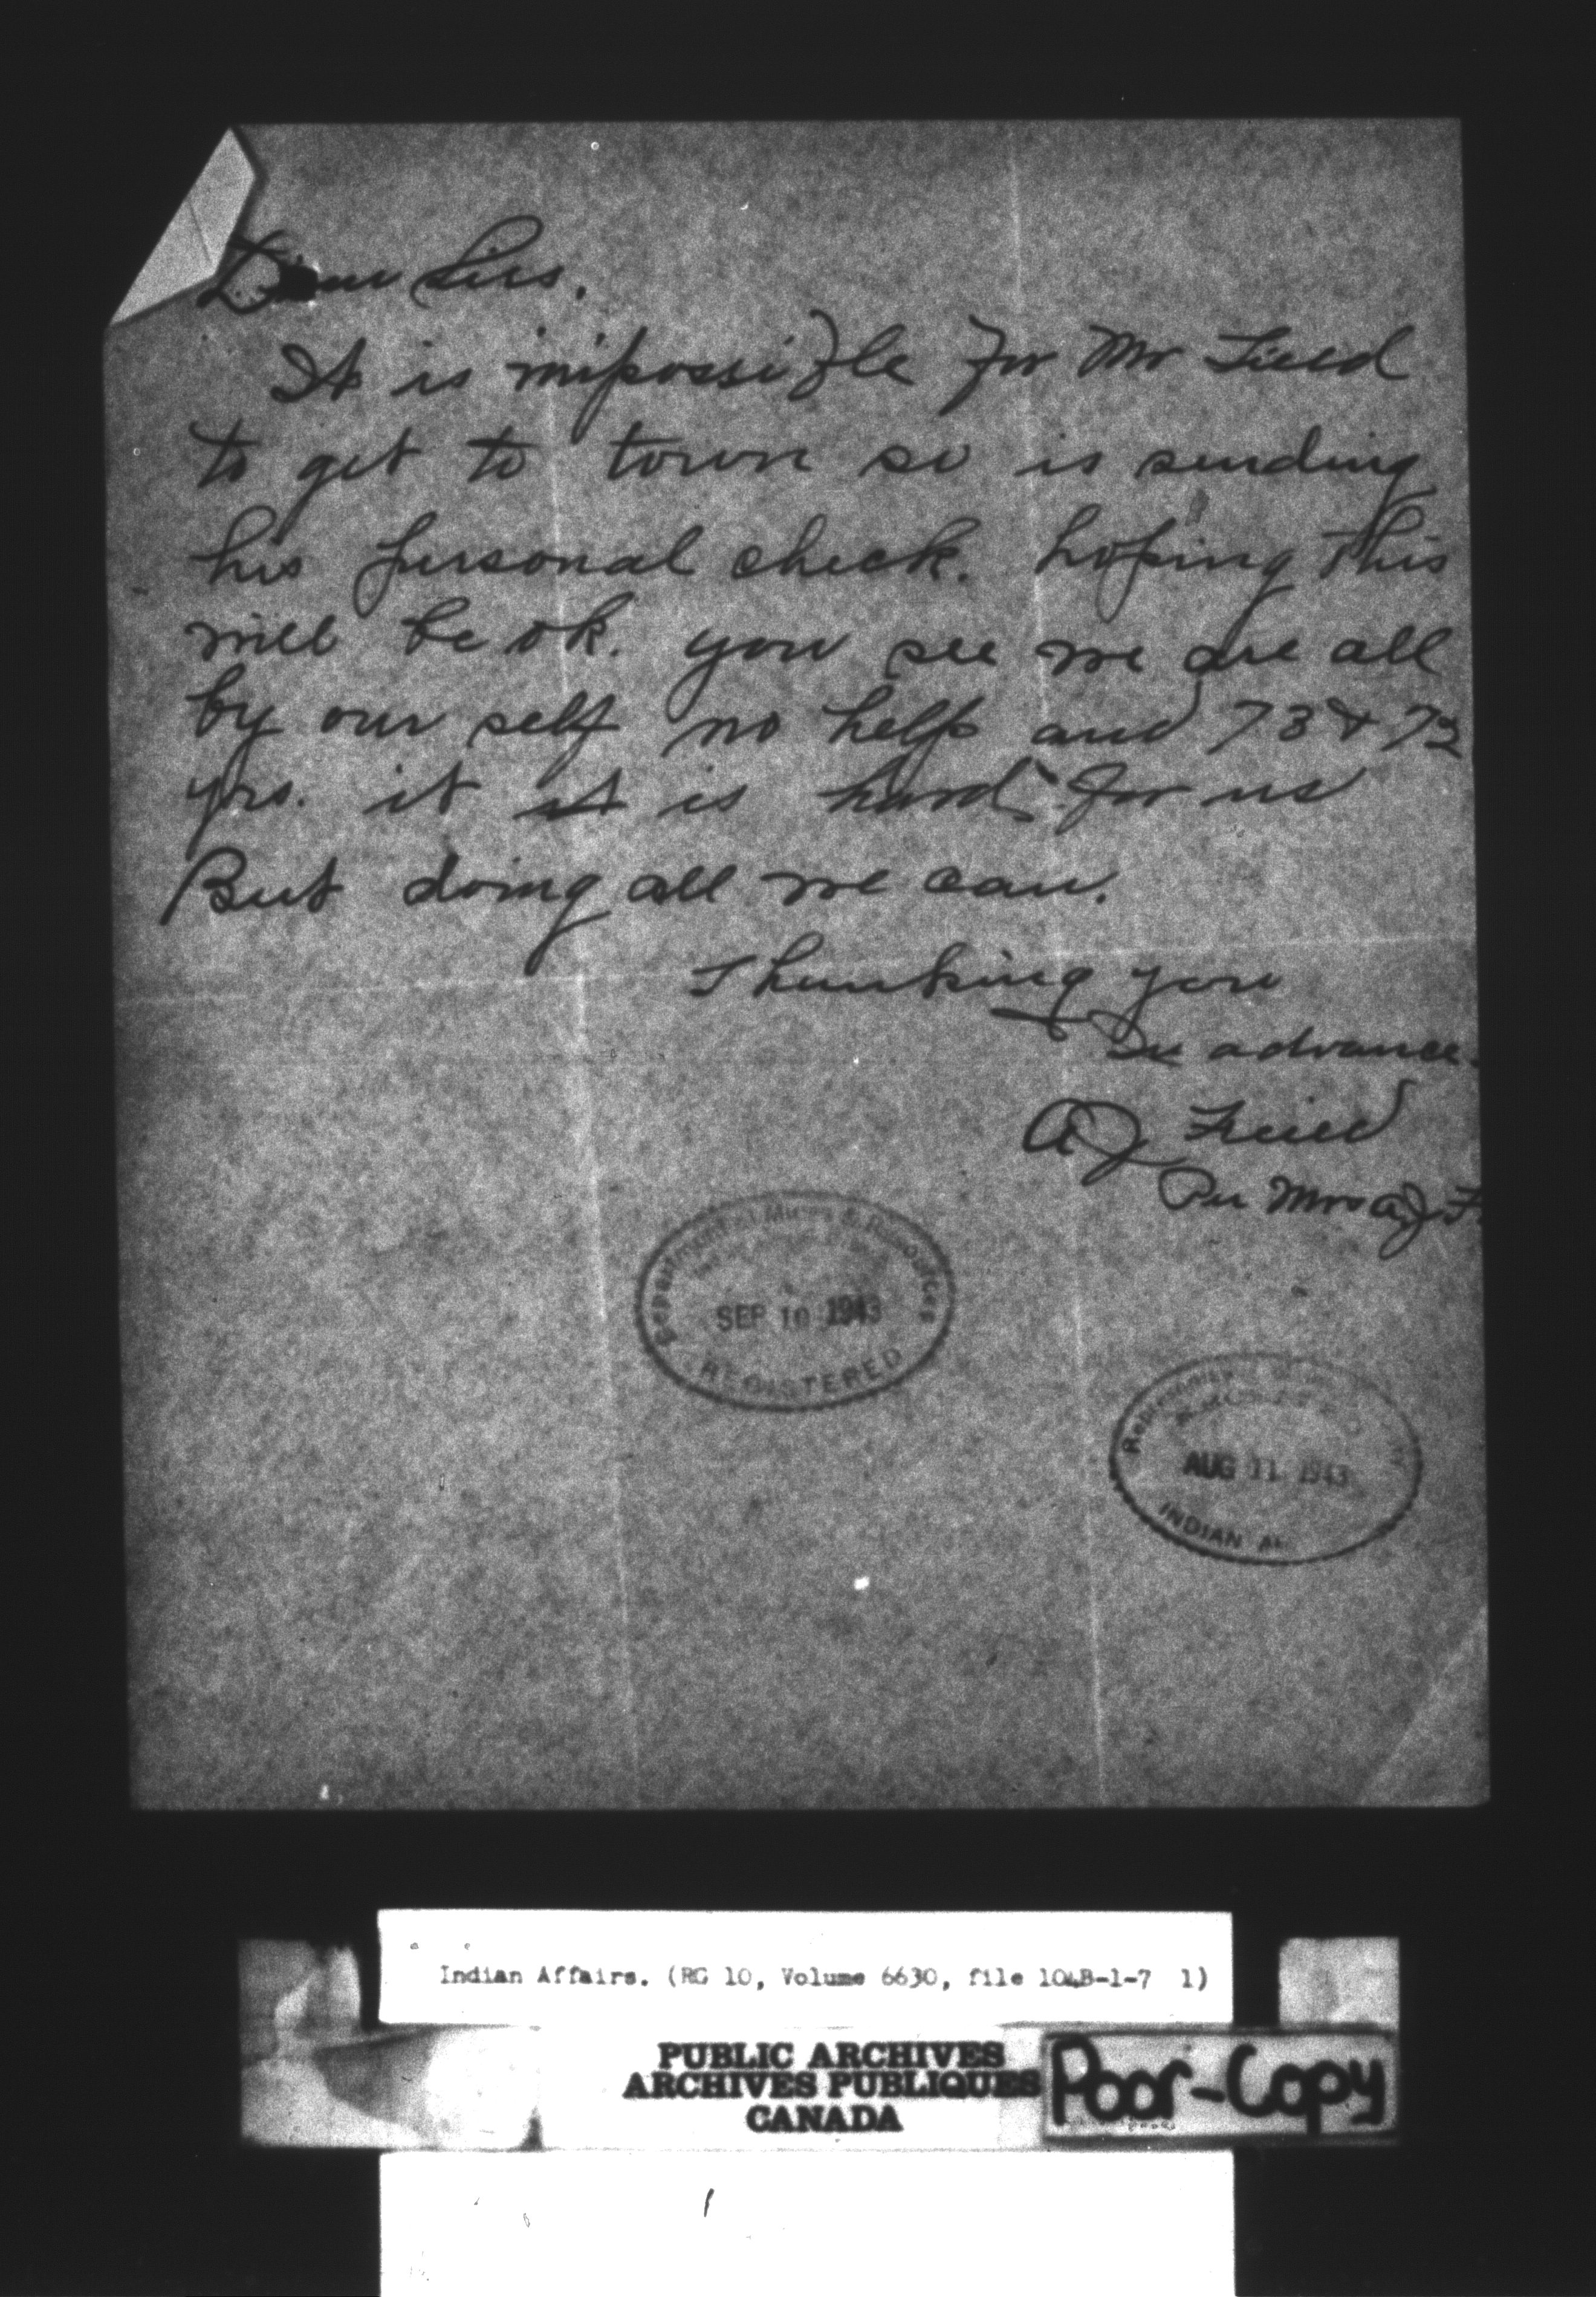 Dear Sirs.
It is impossible for Mr Fried
to get to town so is sending
his personal check. hoping this
will be ok. you see we are all
by our self no help and 73 & 72
yrs. it it is hard for us
But doing all we can.
Thanking you
In advance.
AJ Fried
Per Mrs AJ F.
Department of Mines & Resources
SEP 10 1943
REGISTERED
AUG 11 1943
INDIAN
Indian Affairs. (RG 10, Volume 6630, file 104B-1-7 1)
PUBLIC ARCHIVES
ARCHIVES PUBLIQUES
CANADA
Poor-Copy